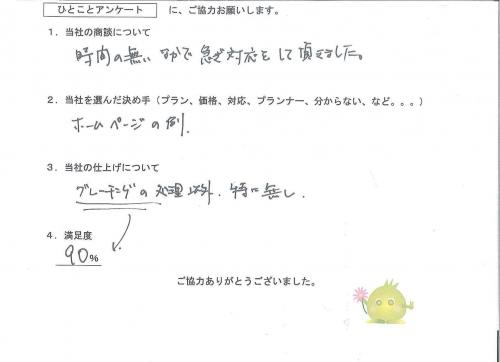 ひとことアンケート に、ご協力お願いします。
1．当社の商談について
時間の無いなかで急ぎ対応をして頂きました。
2．当社を選んだ決め手（プラン、価格、対応、プランナー、分からない、など。。。）
ホームページの例.
3．当社の仕上げについて
グレーチングの処理以外.特に無し.
4．満足度
90%
ご協力ありがとうございました。